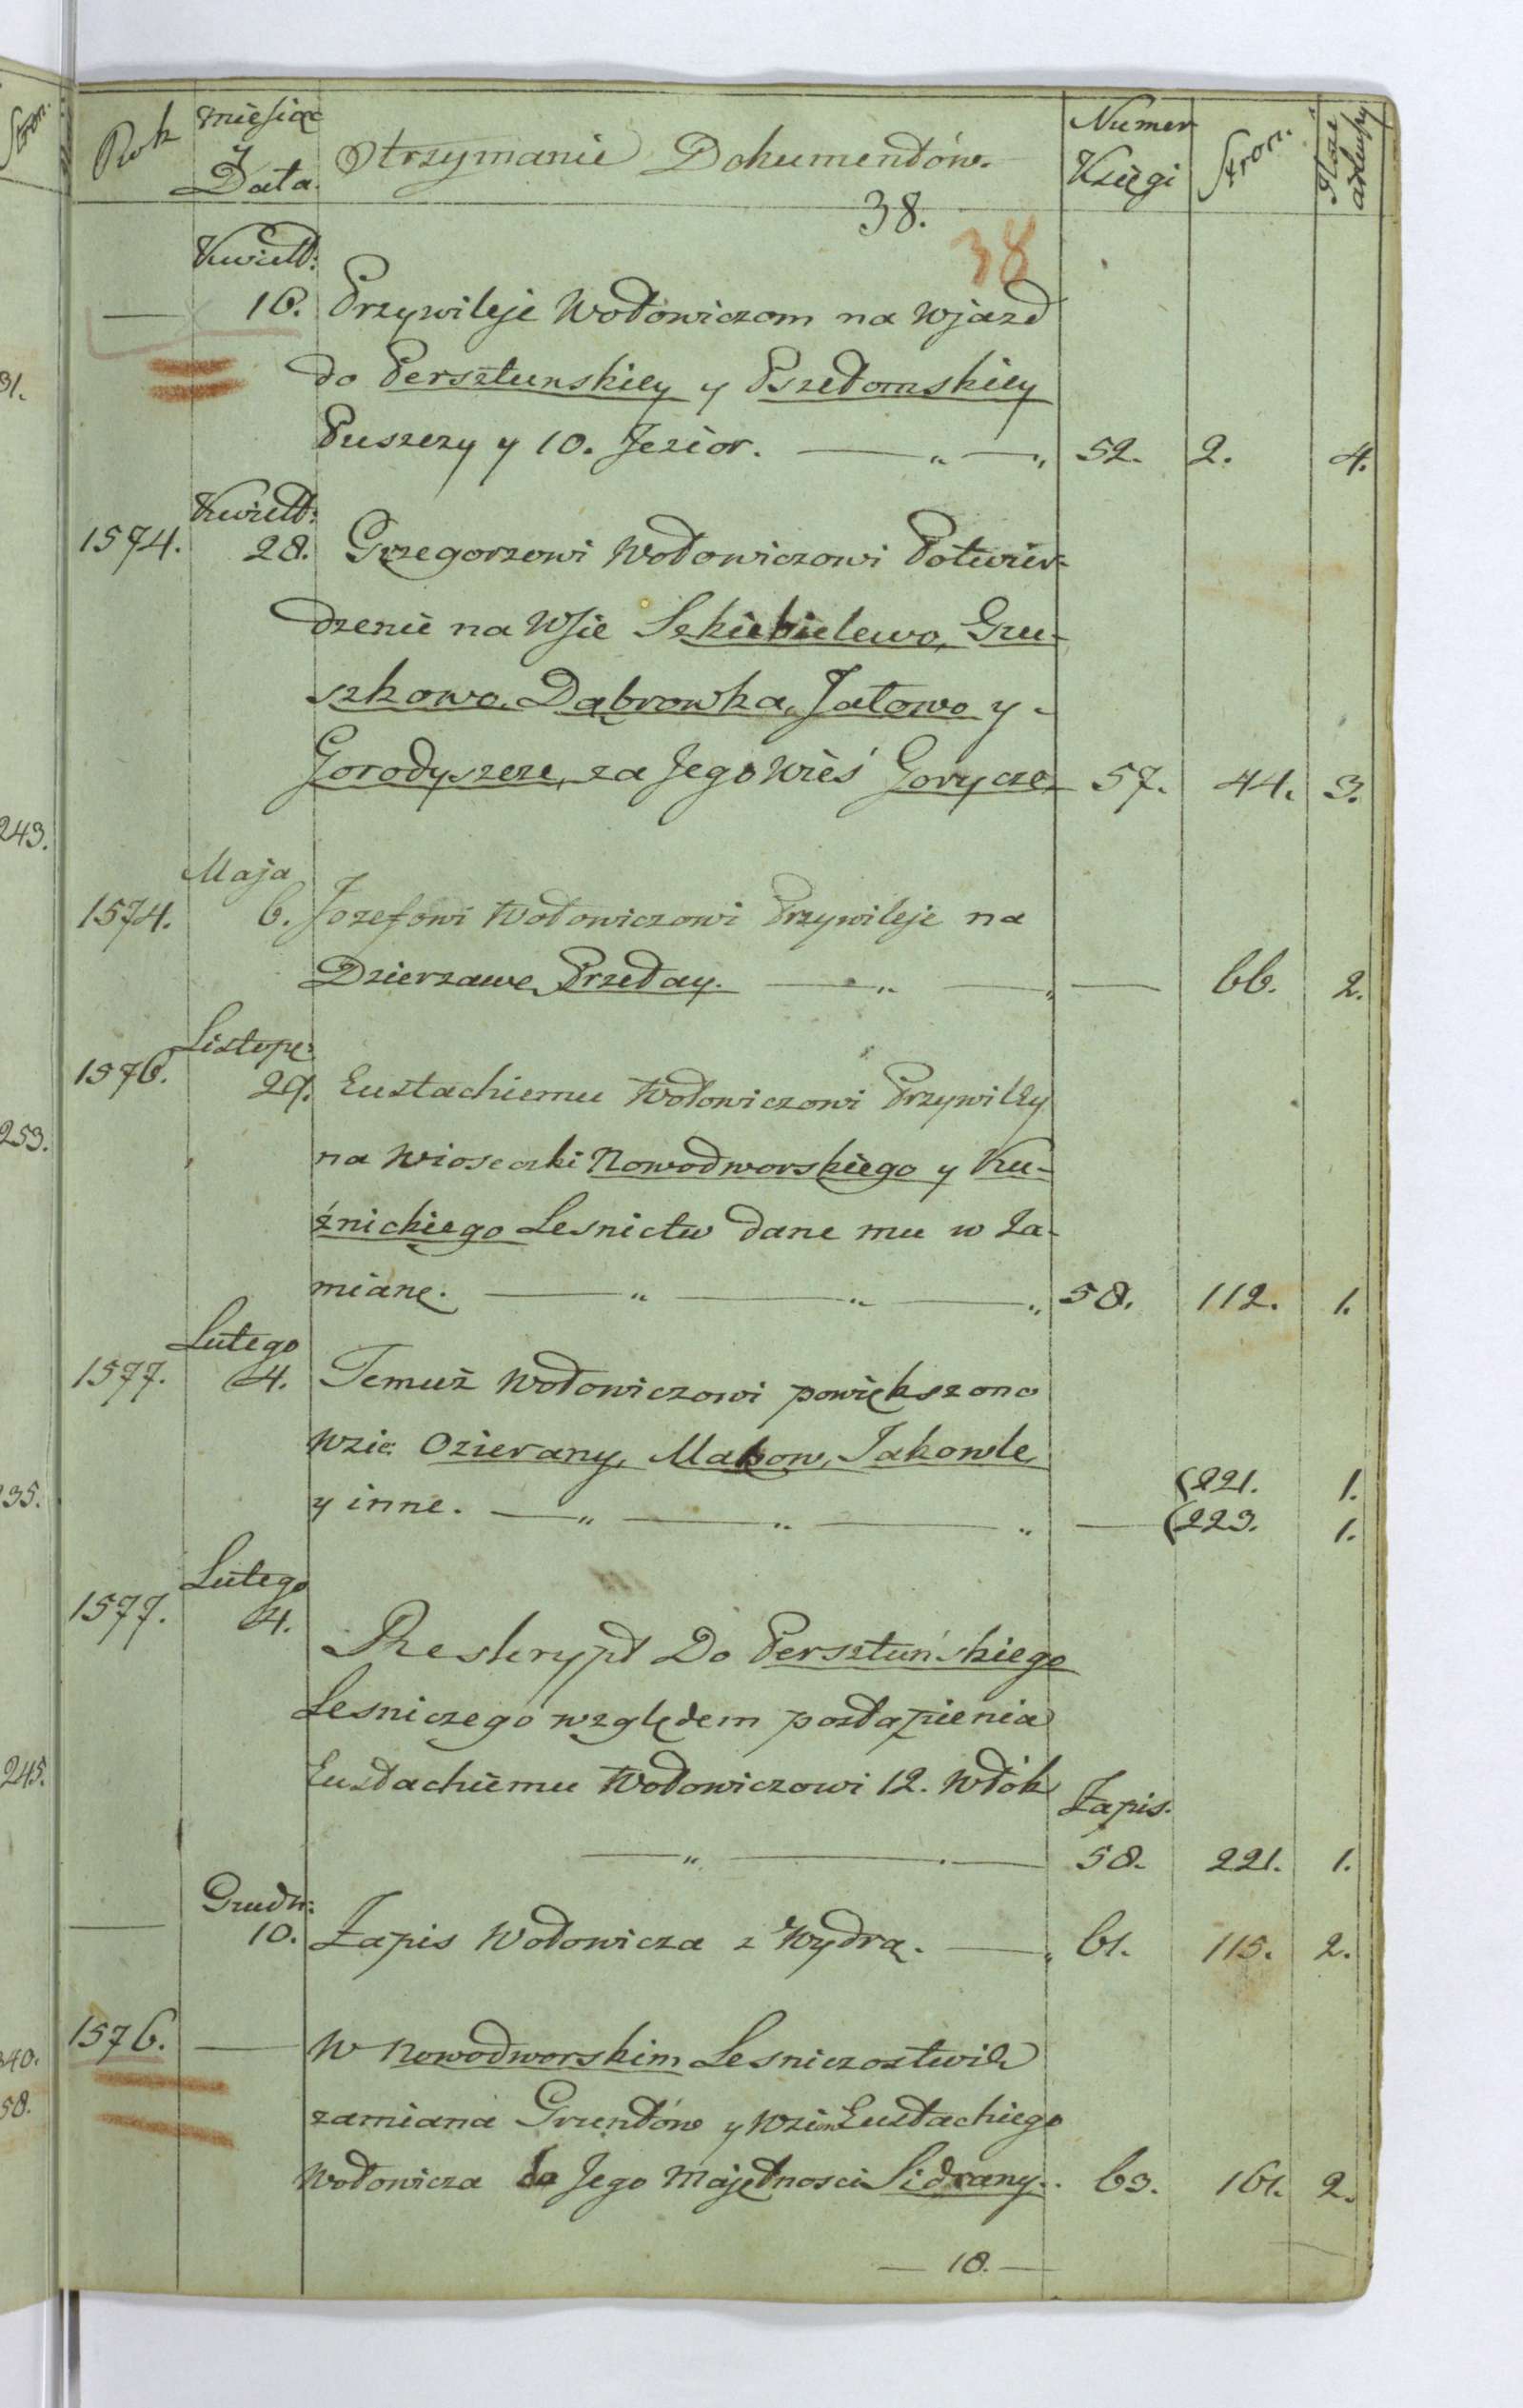 Rok
miesiąc
y
Data.
Otrzymanie Dokumentów.
Numer
Księgi
Stron.
38.
38
Kwiet:
— 16. Przywileje Wołowiczom na Wjazd
do Persztunskiey y Pszełomskiey
Puszczy y 10. Jezior. — „ — „ 52. 2. 4.
Kwiet:
1574. 28. Grzegorzowi Wołowiczowi Potwier-
dzenie na Wsie Szkiebielewo, Gru-
szkowo, Dąbrowka, Jatowo y
Gorodyszcze, za Jego Wieś Gorycze. 57. 44. 3.
Maja
1574. 6. Jozefowi Wołowiczowi Przywileje na
Dzierzawe Przełay. — „ — „ — 66. 2.
Listop:
1576. 29. Eustachiemu Wołowiczowi Przywiley
na Wioseczki Nowodworskiego y Ku-
źnickiego Lesnictw dane mu w Za-
mianę. — „ — „ — „ 58. 112. 1.
Lutego
1577. 4. Temuż Wołowiczowi powiększono
Wzie Ozierany, Makow, Jakowle,
y inne. — „ — „ — „ — (221. 1.
(223. 1.
Lutego
1577. 4.
Reskrypt Do Persztuńskiego
Lesniczego względem postąpienia
Eustachiemu Wołowiczowi 12. Włók
Zapis.
— „ — . — 58. 221. 1.
Grudn:
— 10. Zapis Wołowicza z Wydrą. — „ 61. 115. 2.
1576. — W Nowodworskim Lesniczostwie
zamiana Gruntów y Wziow Eustachiego
Wołowicza do Jego Majętnosci Sidrany. 63. 161. 2.
— 18. —
31.
243.
253.
35.
245.
340.
58.